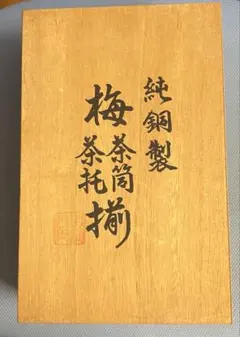 純銅製
梅茶筒茶托揃